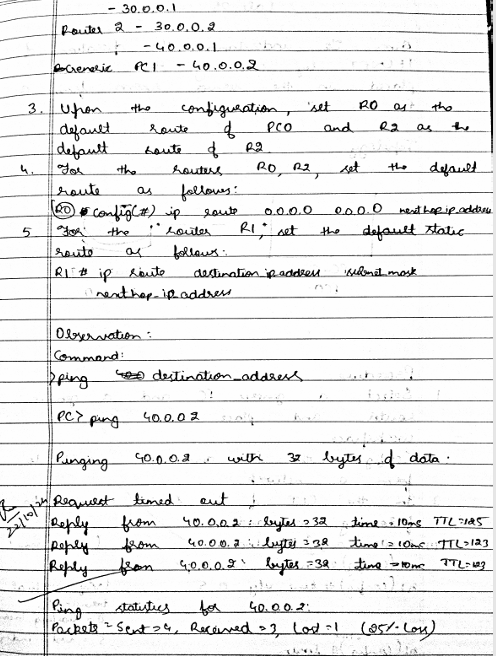 - 30.0.0.1
Router 2 - 30.0.0.2
- 40.0.0.1
Generic PC1 - 40.0.0.2
3. Upon the configuration, set R0 as the
default route of PC0 and R2 as the
default route of R2.
4. For the routers R0, R2, set the default
route as follows:
R0 config(#) ip route 0.0.0.0 0.0.0.0 next hop ip address
5 For the router R1, set the default static
route as follows:
R1 # ip route destination ip address subnet mask
next hop ip address
Observation:
Command:
>ping destination_address
PC> ping 40.0.0.2
Pinging 40.0.0.2 with 32 bytes of data.
Request timed out
Reply from 40.0.0.2: bytes=32 time=10ms TTL=125
Reply from 40.0.0.2: bytes=32 time=10ms TTL=123
Reply from 40.0.0.2: bytes=32 time=10ms TTL=123
22/10/24
Ping statistics for 40.0.0.2:
Packets = Sent=4, Received=3, Lost=1 (25% Loss)